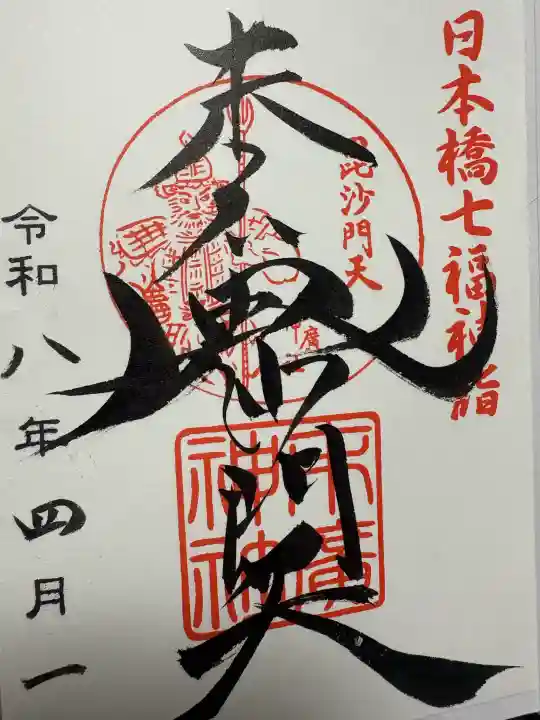 日本橋七福神詣
毘沙門天
毘沙門天
末廣
神社
令和八年四月一